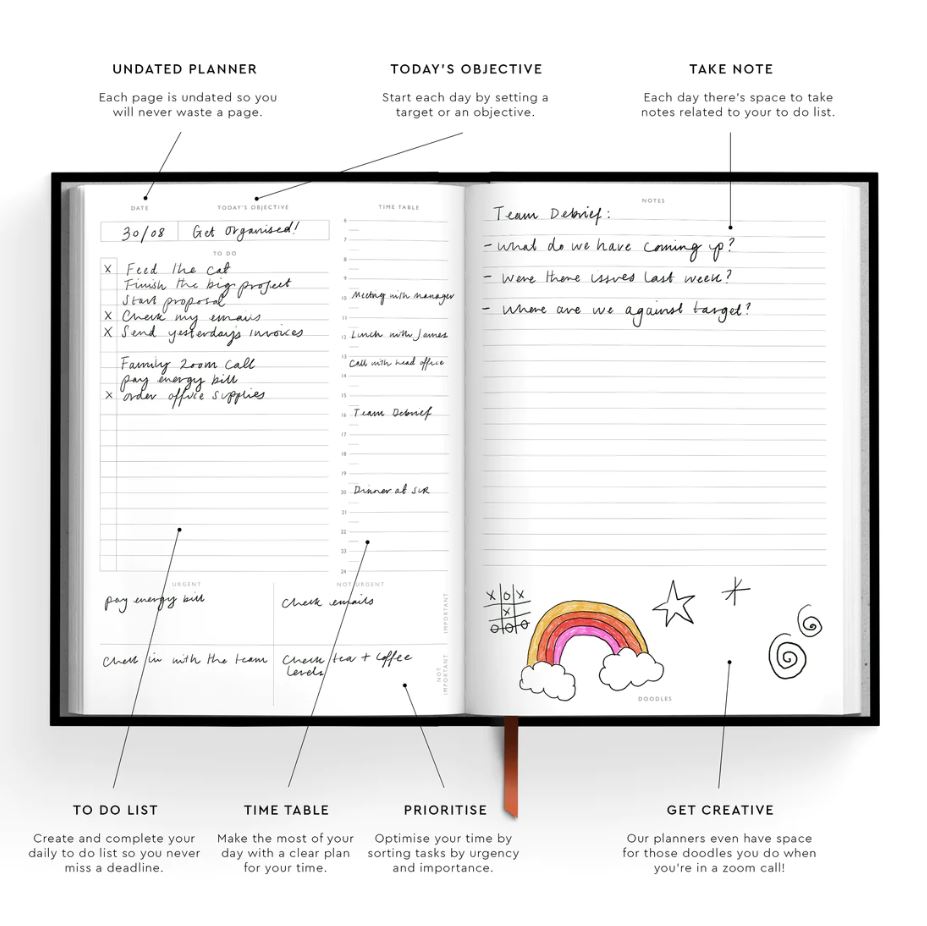 UNDATED PLANNER
Each page is undated so you
will never waste a page.
TODAY'S OBJECTIVE
Start each day by setting a
target or an objective.
TAKE NOTE
Each day there's space to take
notes related to your to do list.
DATE
TODAY'S OBJECTIVE
30/08
Get organised!
TO DO
X Feed the cat
Finish the big project
Start proposal
X Check my emails
X Send yesterday's invoices
Family zoom call
pay energy bill
X order office supplies
TIME TABLE
6
7
8
9
10 Meeting with manager
11
12 Lunch with James
13 Call with head office
14
15
16 Team Debrief
17
18
19
20 Dinner at
21
22
23
24
URGENT
NOT URGENT
pay energy bill
Check emails
IMPORTANT
Check in with the team
Check tea + coffee
levels
NOT
IMPORTANT
NOTES
Team Debrief:
- What do we have coming up?
- Were there issues last week?
- Where are we against target?
X O X
X
O O O
DOODLES
TO DO LIST
Create and complete your
daily to do list so you never
miss a deadline.
TIME TABLE
Make the most of your
day with a clear plan
for your time.
PRIORITISE
Optimise your time by
sorting tasks by urgency
and importance.
GET CREATIVE
Our planners even have space
for those doodles you do when
you're in a zoom call!